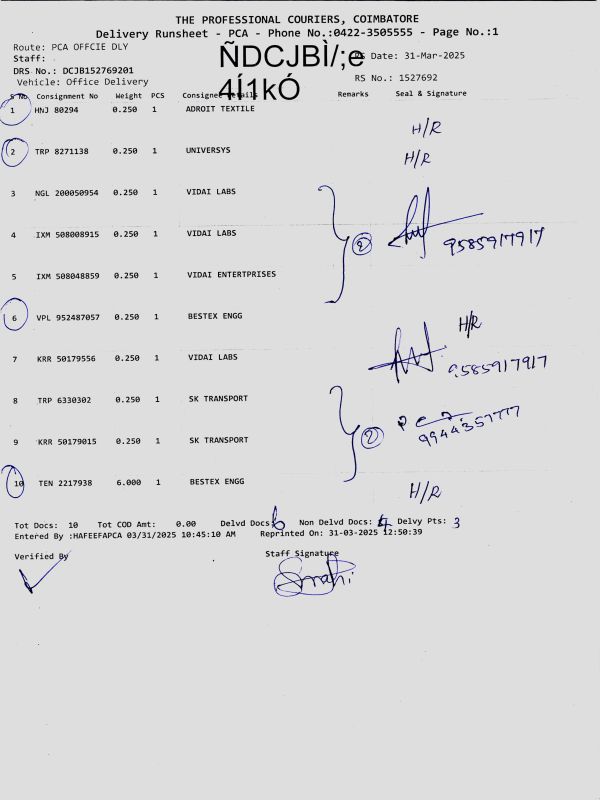 THE PROFESSIONAL COURIERS, COIMBATORE
Delivery Runsheet - PCA - Phone No.:0422-3505555 - Page No.:1
Route: PCA OFFCIE DLY
Staff:
ÑDCJBÌ/;e
4Í1kÓ
RS Date: 31-Mar-2025
DRS No.: DCJB152769201
RS No.: 1527692
Vehicle: Office Delivery
S No Consignment No Weight PCS Consignee Details Remarks Seal & Signature
1 HNJ 80294 0.250 1 ADROIT TEXTILE
H/R
2 TRP 8271138 0.250 1 UNIVERSYS H/R
3 NGL 200050954 0.250 1 VIDAI LABS
4 IXM 508008915 0.250 1 VIDAI LABS 2 9585917917
5 IXM 508048859 0.250 1 VIDAI ENTERTPRISES
6 VPL 952487057 0.250 1 BESTEX ENGG H/R
7 KRR 50179556 0.250 1 VIDAI LABS 9585917917
8 TRP 6330302 0.250 1 SK TRANSPORT
9 KRR 50179015 0.250 1 SK TRANSPORT 2 9944357777
10 TEN 2217938 6.000 1 BESTEX ENGG H/R
Tot Docs: 10 Tot COD Amt: 0.00 Delvd Docs: 6 Non Delvd Docs: 4 Delvy Pts: 3
Entered By :HAFEEFAPCA 03/31/2025 10:45:10 AM Reprinted On: 31-03-2025 12:50:39
Verified By Staff Signature